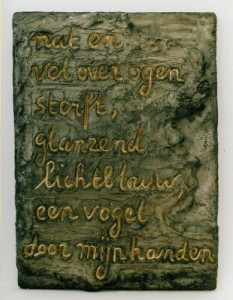 nat en
vet over ogen
sterft,
glanzend
lichtblauw,
een vogel
door mijn handen